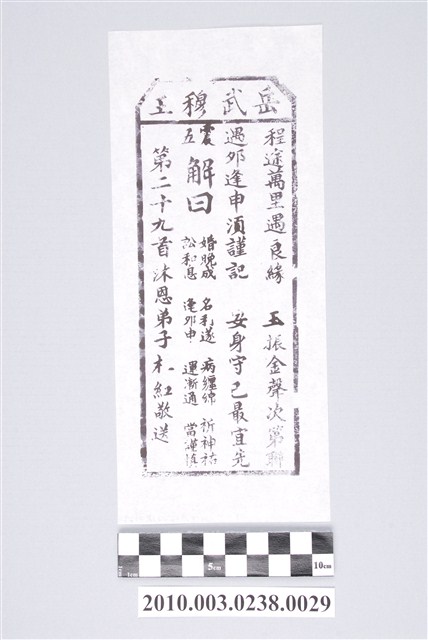 岳武穆王
程途萬里遇良緣 玉振金聲次第聯
遇夘逢申須謹記 安身守己最宜先
震五
解曰
婚晚成 名利遂 病纏綿 祈神祐
訟和息 逢夘申 運漸通 當謹慎
第二十九首沐恩弟子朩紅敬送
5cm
10cm
2010.003.0238.0029